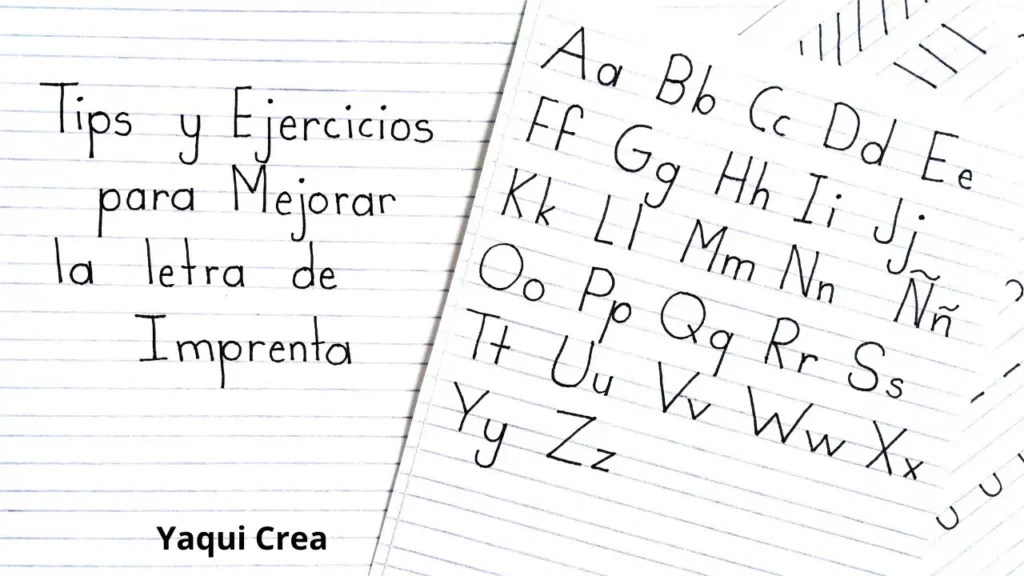 Tips y Ejercicios
para Mejorar
la letra de
Imprenta
Yaqui Crea
Aa Bb Cc Dd Ee
Ff Gg Hh Ii Jj
Kk Ll Mm Nn Ññ
Oo Pp Qq Rr Ss
Tt Uu Vv Ww Xx
Yy Zz